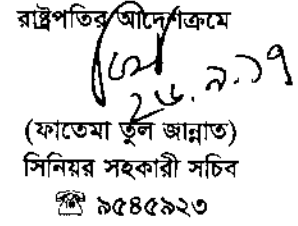 রাষ্ট্রপতির আদেশক্রমে
২৬.৯.১৭
(ফাতেমা তুল জান্নাত)
সিনিয়র সহকারী সচিব
☎ ৯৫৪৫৯২৩